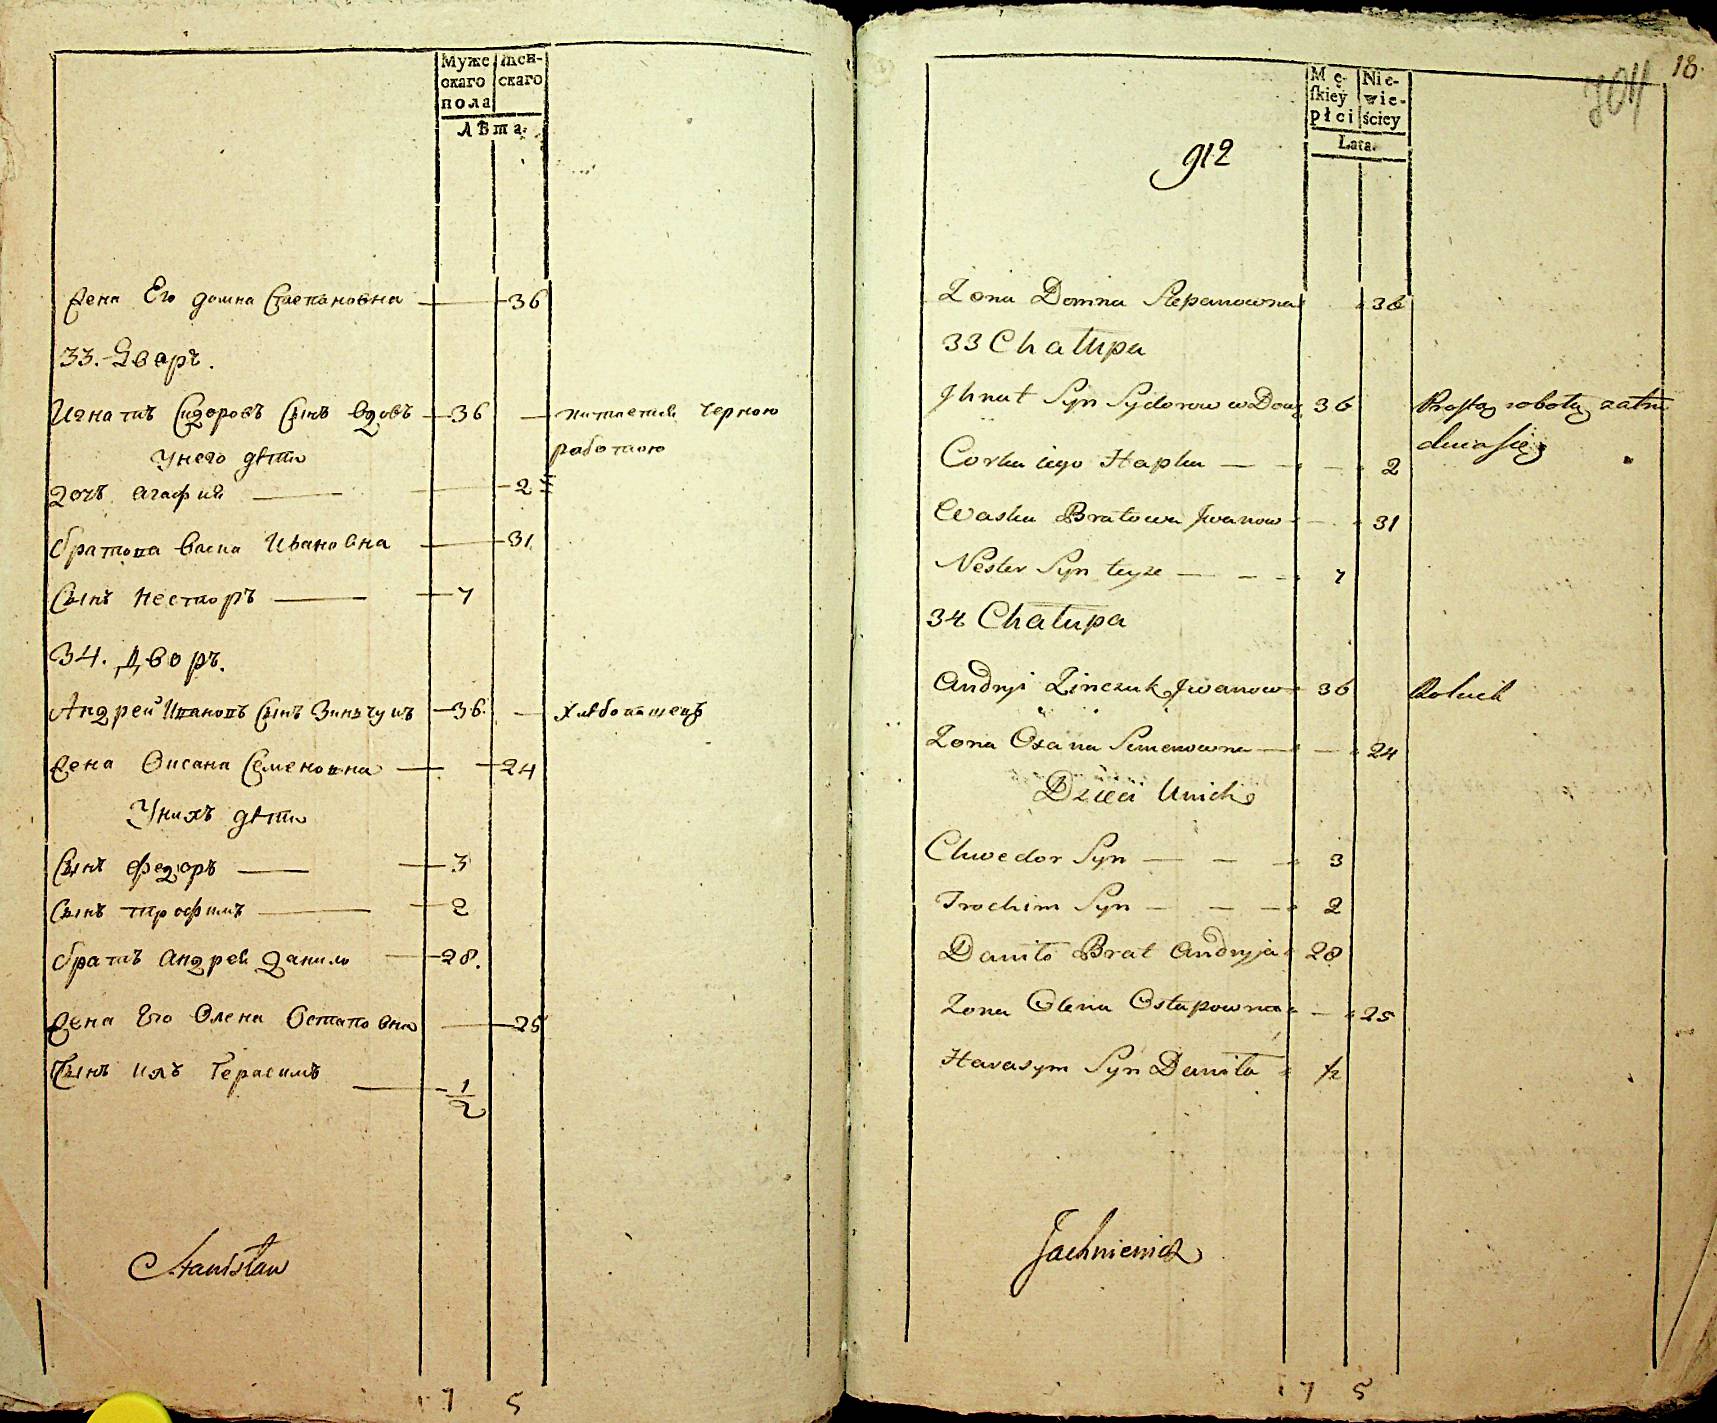 Муже скаго пола
Жен- скаго
Лѣта.
Жена Его домна Степановна 36
33. Дворъ.
Игнатъ Сидоровъ Сынъ вдовъ 36 питается черною
работою
У него дѣти
дочь агафия 2
братова васка Ивановна 31
Сынъ Несторъ 7
34. Дворъ.
Андрей Ивановъ Сынъ Зинчукъ 36. хлѣбопашецъ
Жена Оксана Семеновна 24
У нихъ дѣти
Сынъ федоръ 3
Сынъ трофимъ 2
братъ андрея данило 28.
Жена Его Олена Остаповна 25
Сынъ ихъ Герасимъ 1/2
Stanisław
7 5
18.
704
Mę- skiey płci
Nie- wie- ściey
Lata.
912
Zona Domna Stepanowna 36
33 Chałupa
Ihnat Syn Sydorow wDow 36 Prostą robotą zatru
dnia się
Corka iego Hapka 2
Waska Bratowa Jwanow 31
Nester Syn teyze 7
34 Chałupa
Andryi Zinczuk Jwanow 36 Rolnik
Zona Oxana Semenowna 24
Dzieci Unich
Chwedor Syn 3
Trochim Syn 2
Daniło Brat Andryja 28
Zona Olena Ostapowna 25
Harasym Syn Daniła 1/2
Jachniewicz
7 5